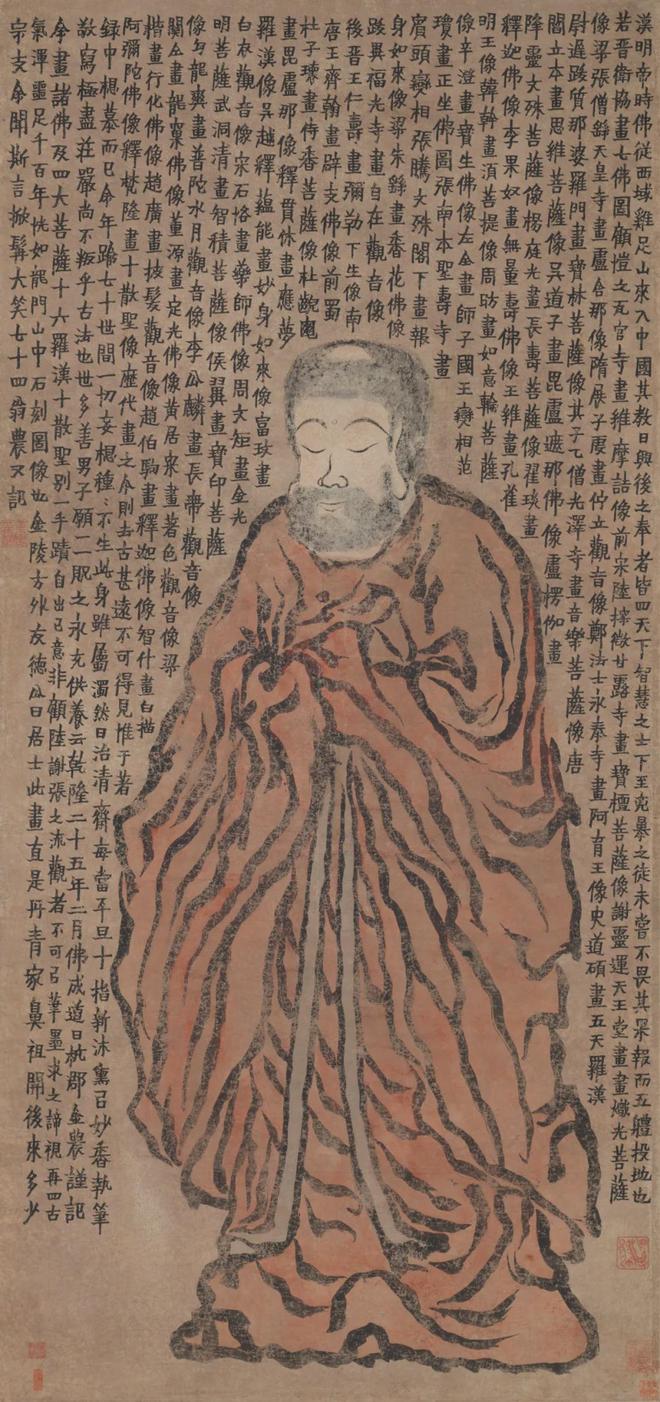 漢明帝時佛從西域雞足山來入中國其教日興後之奉者皆四天下智慧之士下至兇暴之徒未嘗不畏其果報而五體投地也
若晉衛協畫七佛圖顧愷之瓦官寺畫維摩詰像前宋陸探微甘露寺畫寶檀菩薩像謝靈運天王堂畫畫熾光菩薩
像梁張僧繇天皇寺畫盧舍那像隋展子虔畫佇立觀音像鄭法士永泰寺畫阿育王像史道碩畫五天羅漢
尉遲跋質那婆羅門畫寶林菩薩像其子乙僧光澤寺畫音樂菩薩像唐
閻立本畫思維菩薩像吳道子畫毘盧遮那佛像盧楞伽畫
降靈文殊菩薩像楊庭光畫長壽菩薩像翟琰畫
釋迦佛像李果奴畫無量壽佛像王維畫孔雀
明王像韓幹畫須菩提像周昉畫如意輪菩薩
像辛澄畫寶生佛像左全畫師子國王變相范
瓊畫正坐佛圖張南本聖壽寺畫
賓頭變相張騰文殊閣下畫報
身如來像梁朱繇畫香花佛像
跋異福光寺畫自在觀音像
後晉王仁壽畫彌勒下生像南
唐王齊翰畫辟支佛像前蜀
杜子瓌畫侍香菩薩像杜齯龜
畫毘盧那像釋貫休畫應夢
羅漢像吳越釋蘊能畫妙身如來像富玫畫
白衣觀音像宋石恪畫藥師佛像周文矩畫金光
明菩薩武洞清畫智積菩薩像侯翼畫寶印菩薩
像勾龍爽畫普陀水月觀音像李公麟畫長帶觀音像
關仝畫龍窠佛像董源畫定光佛像黃居寀畫著色觀音像梁
楷畫行化佛像趙廣畫披髮觀音像趙伯駒畫釋迦佛像智什畫白描
阿彌陀佛像釋梵隆畫十散聖像歷代畫之今則去古甚遠不可得見惟于著
錄中想慕而已今年踰七十世間一切妄想種種不生此身雖屬濁然日治清齋每當平旦十指新沐熏以妙香執筆
敬寫極盡莊嚴尚不叛乎古法也世多善男子願二眠之永充供養云乾隆二十五年二月佛成道日杭郡金農謹記
余畫諸佛及四大菩薩十六羅漢十散聖別一手蹟自出己意非顧陸謝張之流觀者不可以筆墨求之諦視再四古
氣渾噩足千百年恍如龍門山中石刻圖像也金陵方外友德公曰居士此畫直是丹青家鼻祖開後來多少
宗支余聞斯言掀髯大笑七十四翁農又記